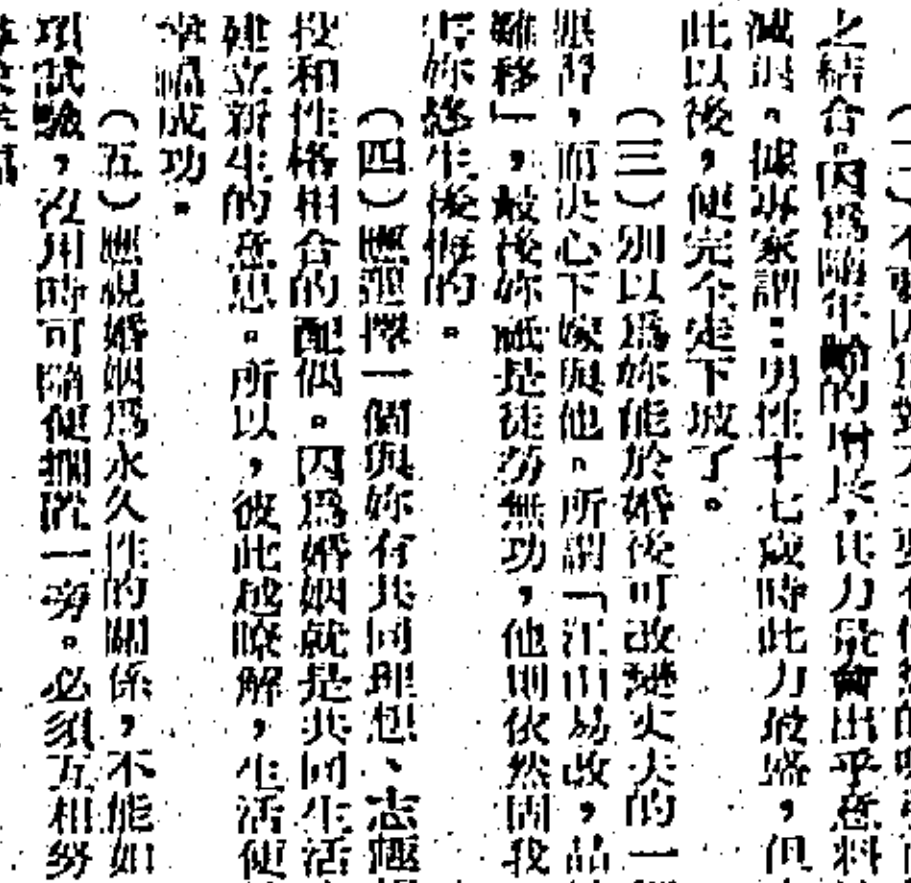 （二）不要因爲
之結合。因爲隨年齡的增長，其力量會出乎意料
減退。據專家謂：男性十七歲時此力最盛，但
此以後，便完全走下坡了。
（三）別以爲妳能於婚後可改變丈夫的一
惡習，而決心下嫁與他。所謂「江山易改，品
難移」，最後妳祗是徒勞無功，他則依然固我
妳終生後悔的。
（四）應選擇一個與妳有共同理想、志趣
投和性格相合的配偶。因爲婚姻就是共同生活
建立新生的意思。所以，彼此越瞭解，生活便
幸福成功。
（五）應視婚姻爲永久性的關係，不能如
項試驗，沒用時可隨便擱置一旁。必須互相努